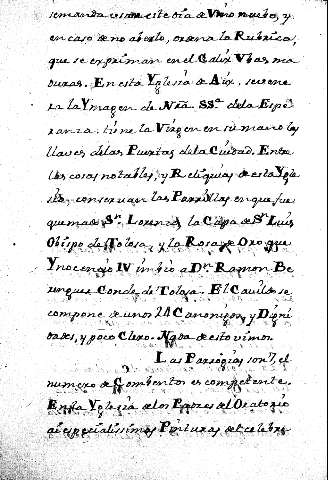 semanda usar este dia de Vino nuebo, y
en caso de no aberlo, ordena la Rubrica,
que se expriman en el Caliz Vbas ma
duras. En esta Yglesia de Aix, se vene
ra la Ymagen de Nrã. SSª. de la Espe
ranza: tiene la Virgen en su mano las
llaves de las Puertas de la Ciudad. Entre
las cosas notables, y Reliquias de esta Ygle
sia, conservan las Parrillas en que fue
quemado Sn. Lorenzo, la Capa de Sn. Luis
Obispo de Tolosa, y la Rosa de Oro que
Ynocencio IV imbió a Dn. Ramon Be
renguer Conde de Tolosa. El Cavildo se
compone de unos 24 Canonigos, y Digni
dades, y poco Clero. Nada de esto vimos.
Las Parroquias son 7, el
numero de Combentos es competente.
En la Yglesia de los Padres del Oratorio
ai especialissimas Pinturas del celebre